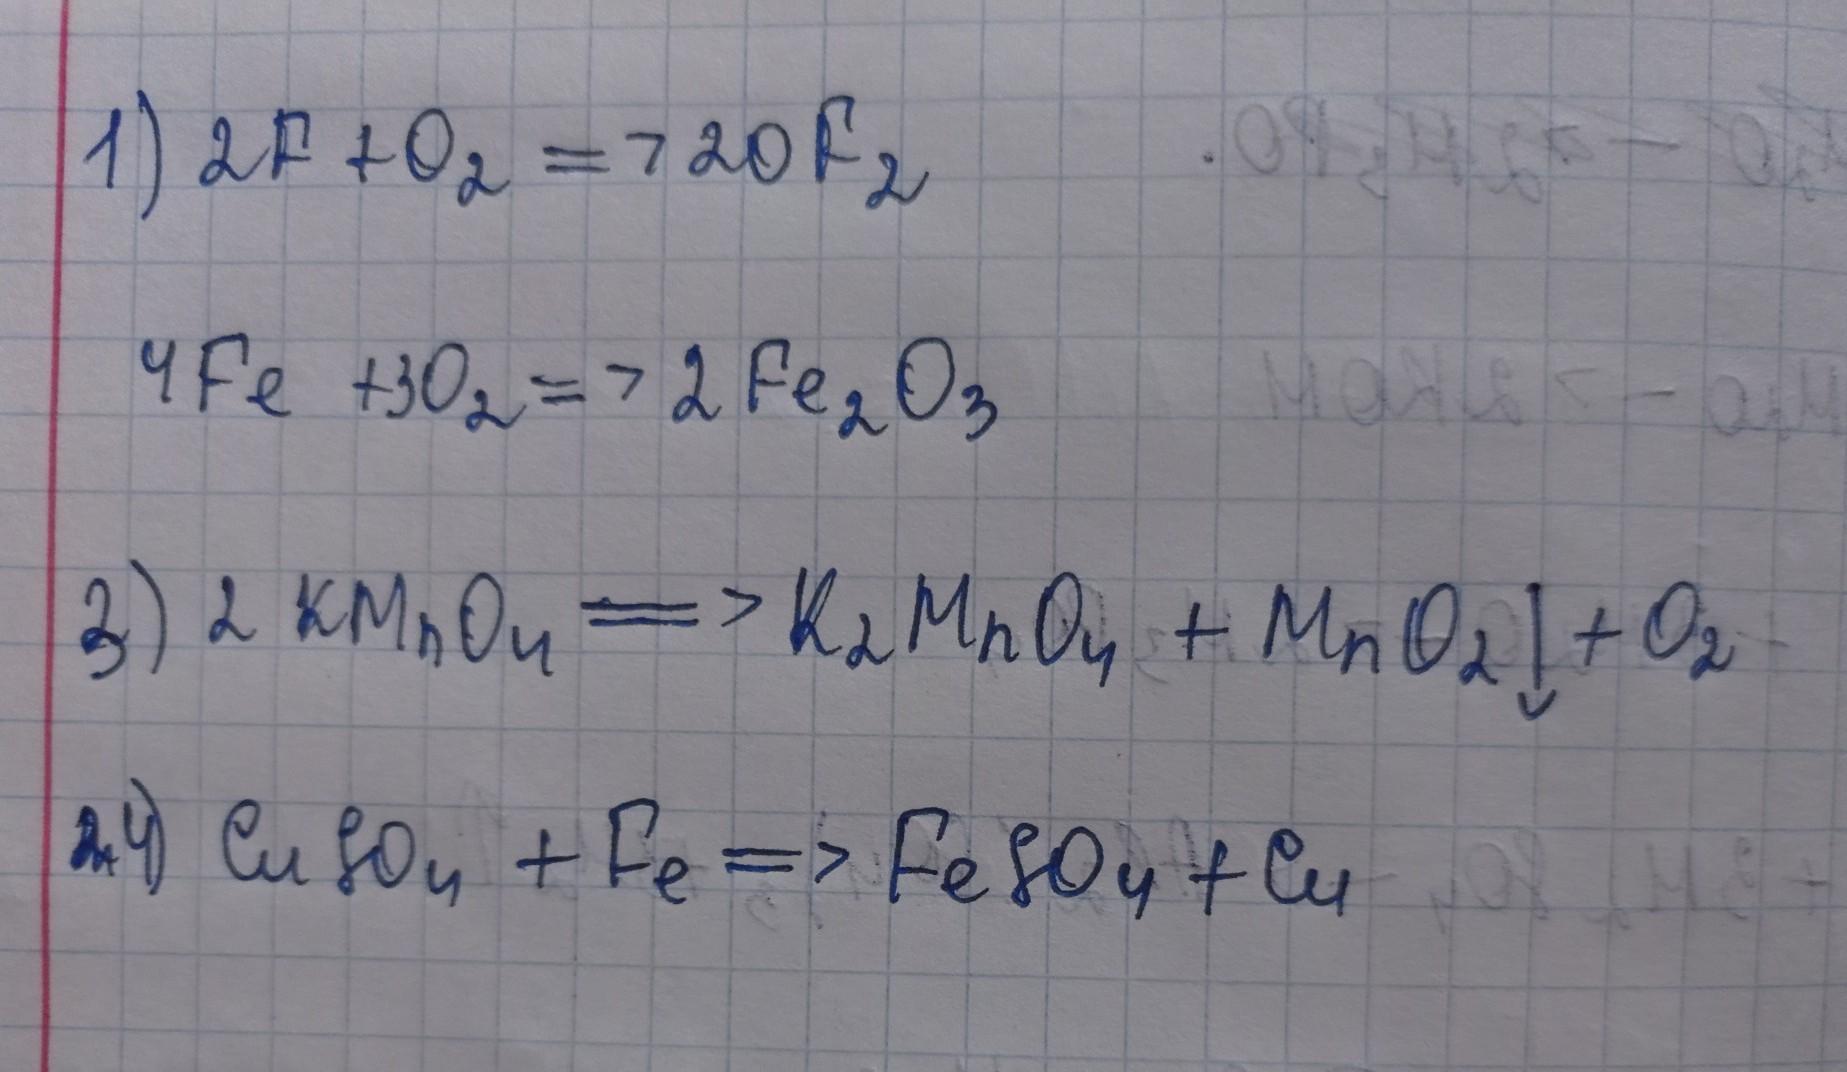 1) 2F + O₂ => 2OF₂
4Fe +3O₂ => 2Fe₂O₃
3) 2 KMnO₄ => K₂MnO₄ + MnO₂↓ + O₂
4) CuSO₄ + Fe => FeSO₄ + Cu